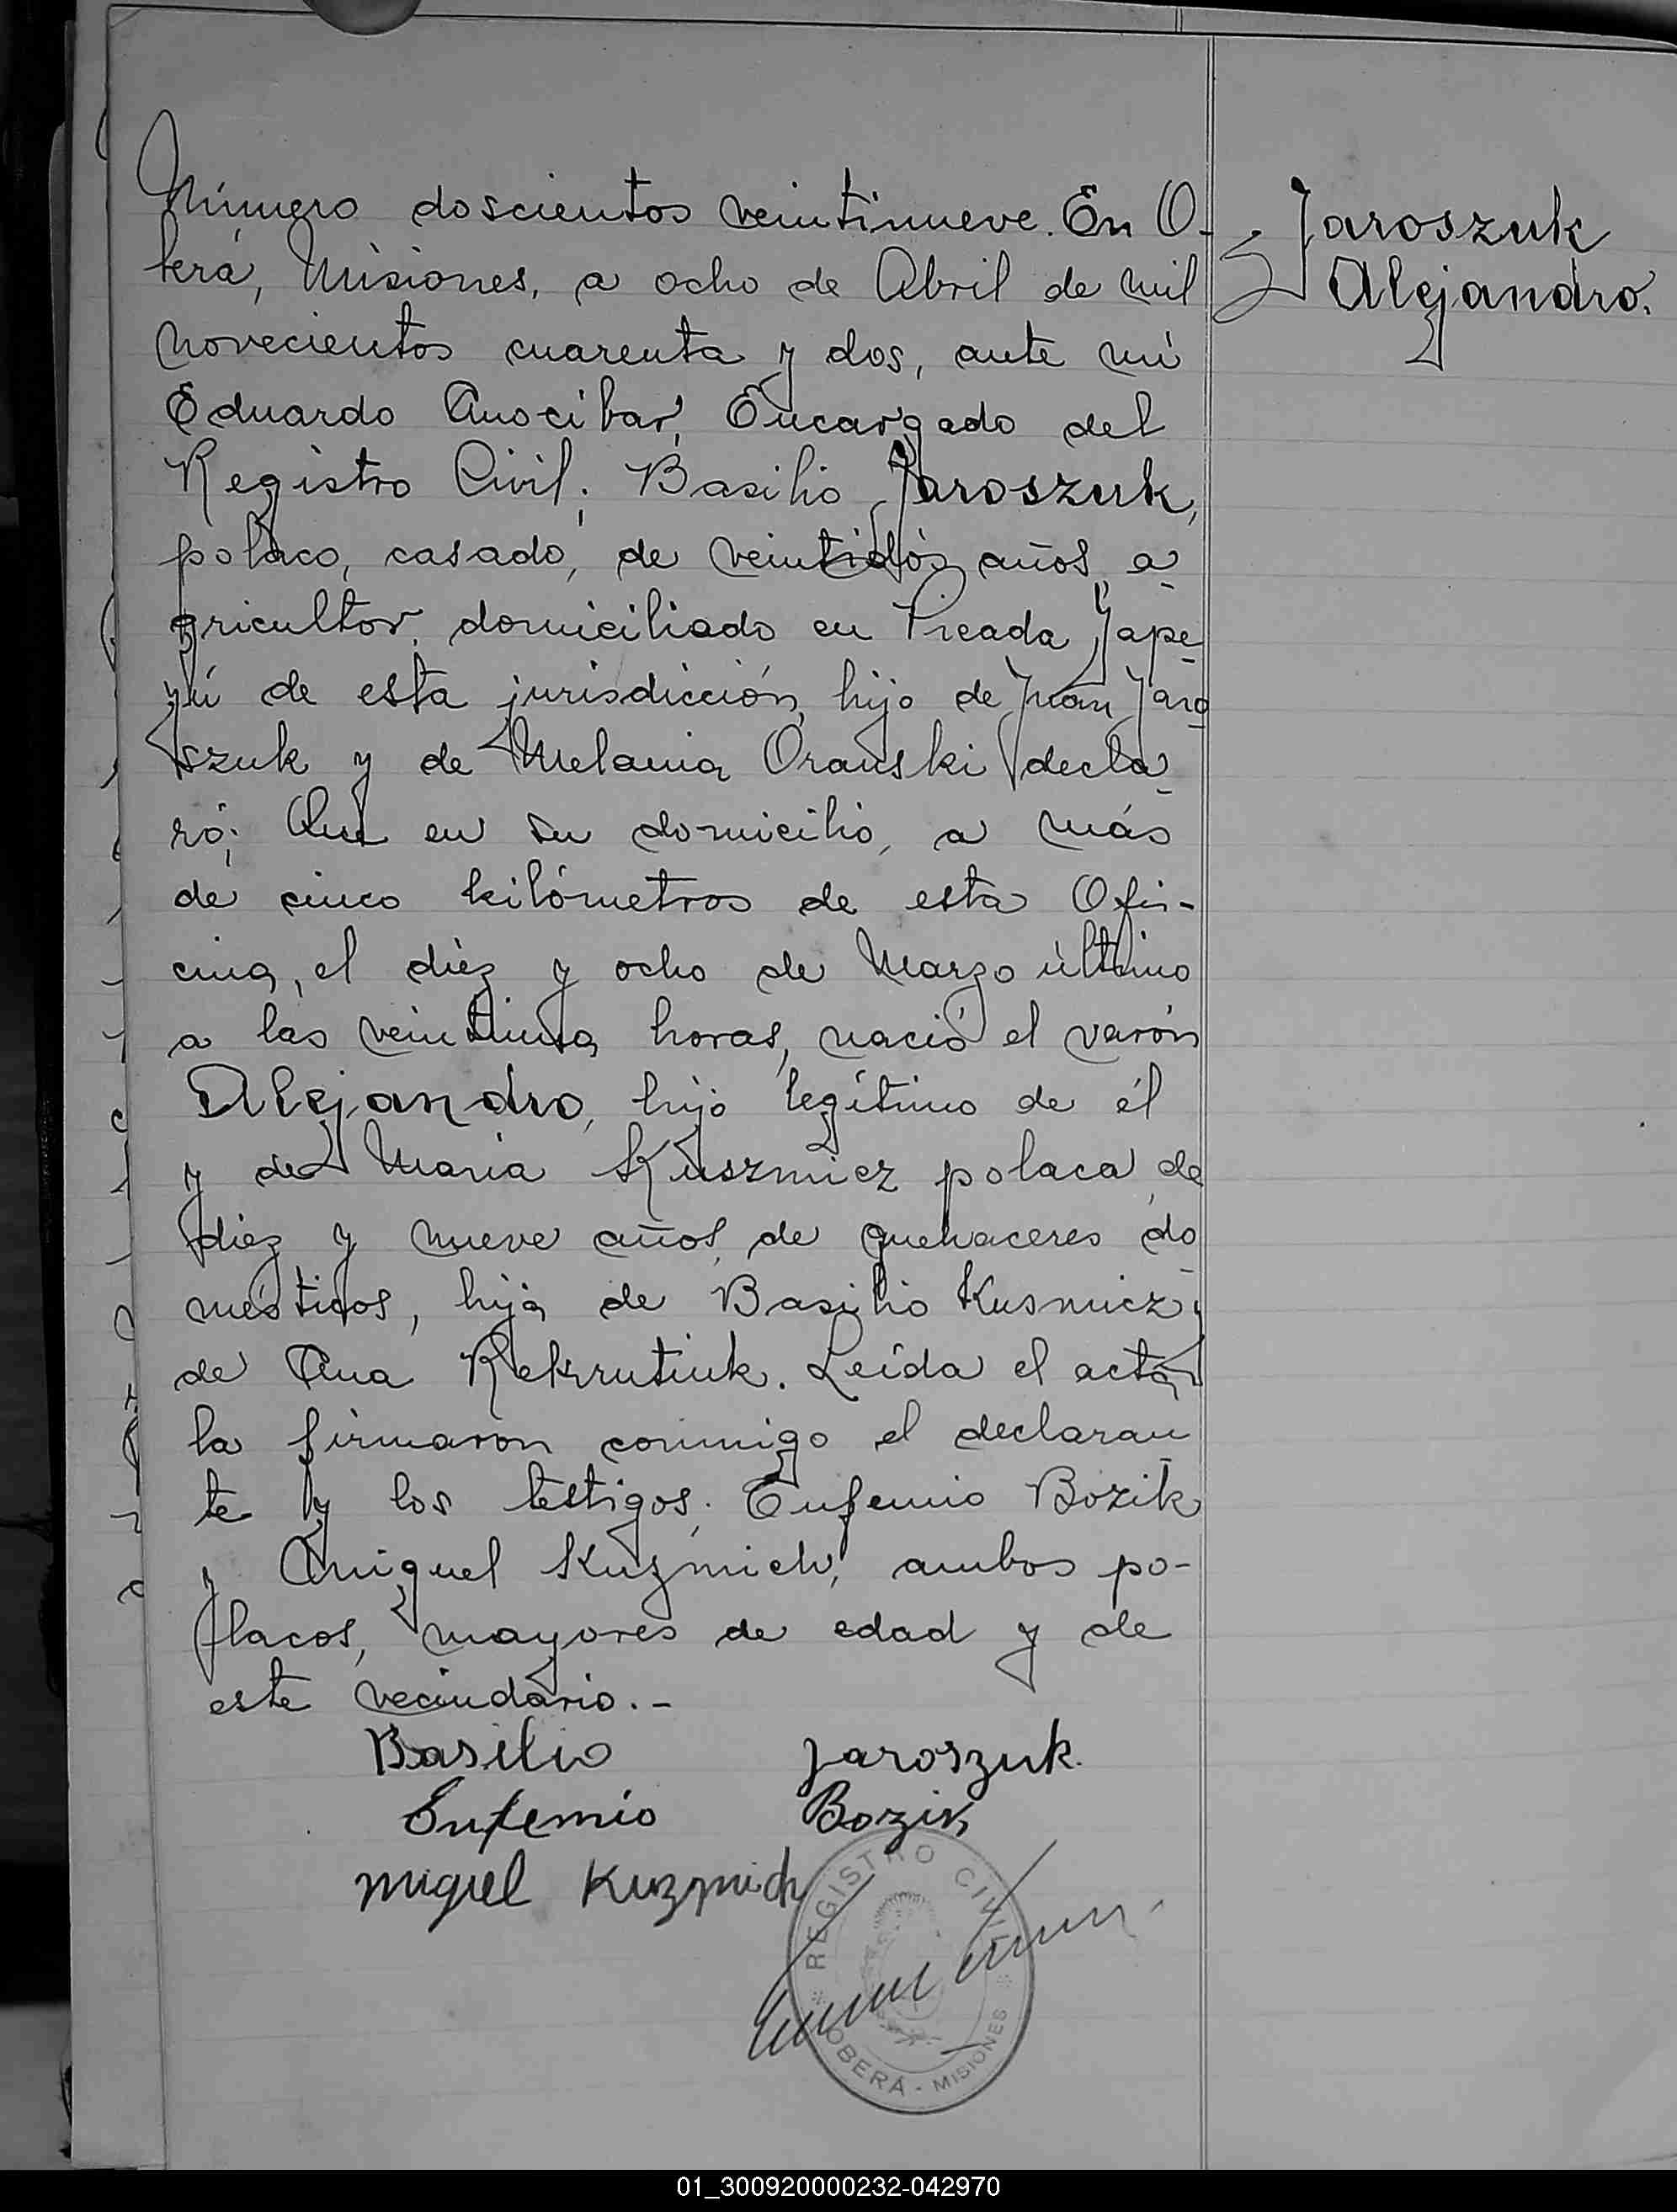 Número doscientos veintinueve. En O-
berá, Misiones, a ocho de Abril de mil
novecientos cuarenta y dos, ante mi
Eduardo Anocibar, Encargado del
Registro Civil; Basilio Jaroszuk,
polaco, casado, de veintidós años, a-
gricultor, domiciliado en Picada Yape-
yú de esta jurisdicción, hijo de Juan Jaro-
szuk y de Melania Oranski decla-
ró; Que en su domicilio, a más
de cinco kilómetros de esta Ofi-
cina, el diez y ocho de Marzo último
a las horas, nació el varón
Alejandro, hijo legítimo de él
y de Maria Kuszmicz polaca, de
diez y nueve años, de quehaceres do-
mésticos, hija de Basilio Kusmicz y
de Ana Rekrutiuk. Leída el acta
la firmaron conmigo el declaran-
te y los testigos: Eufemio Bozik
y Miguel Kuzmich, ambos po-
lacos, mayores de edad y de
este vecindario.-
Basilio Jaroszuk.
Eufemio Bozik
Miguel Kuzmich
REGISTRO CIVIL
OBERÁ - MISIONES
Jaroszuk
Alejandro.
01_300920000232-042970